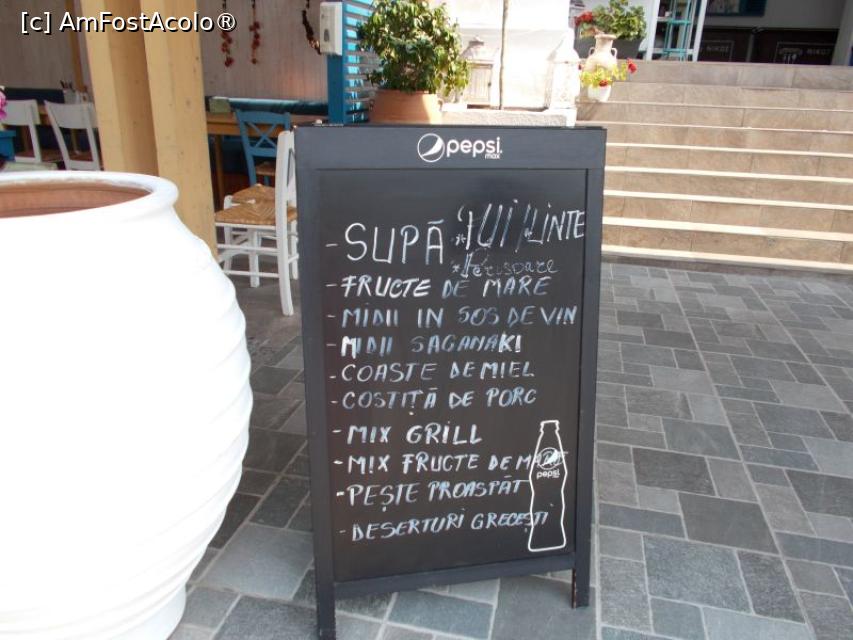 [c] AmFostAcolo®
NIKOS
pepsi
max
- SUPĂ * LINTE
*Perișoare
- FRUCTE DE MARE
- MIDII IN SOS DE VIN
- MIDII SAGANAKI
- COASTE DE MIEL
- COSTIȚĂ DE PORC
- MIX GRILL
- MIX FRUCTE DE MARE
- PEȘTE PROASPĂT
- DESERTURI GRECEȘTI
pepsi